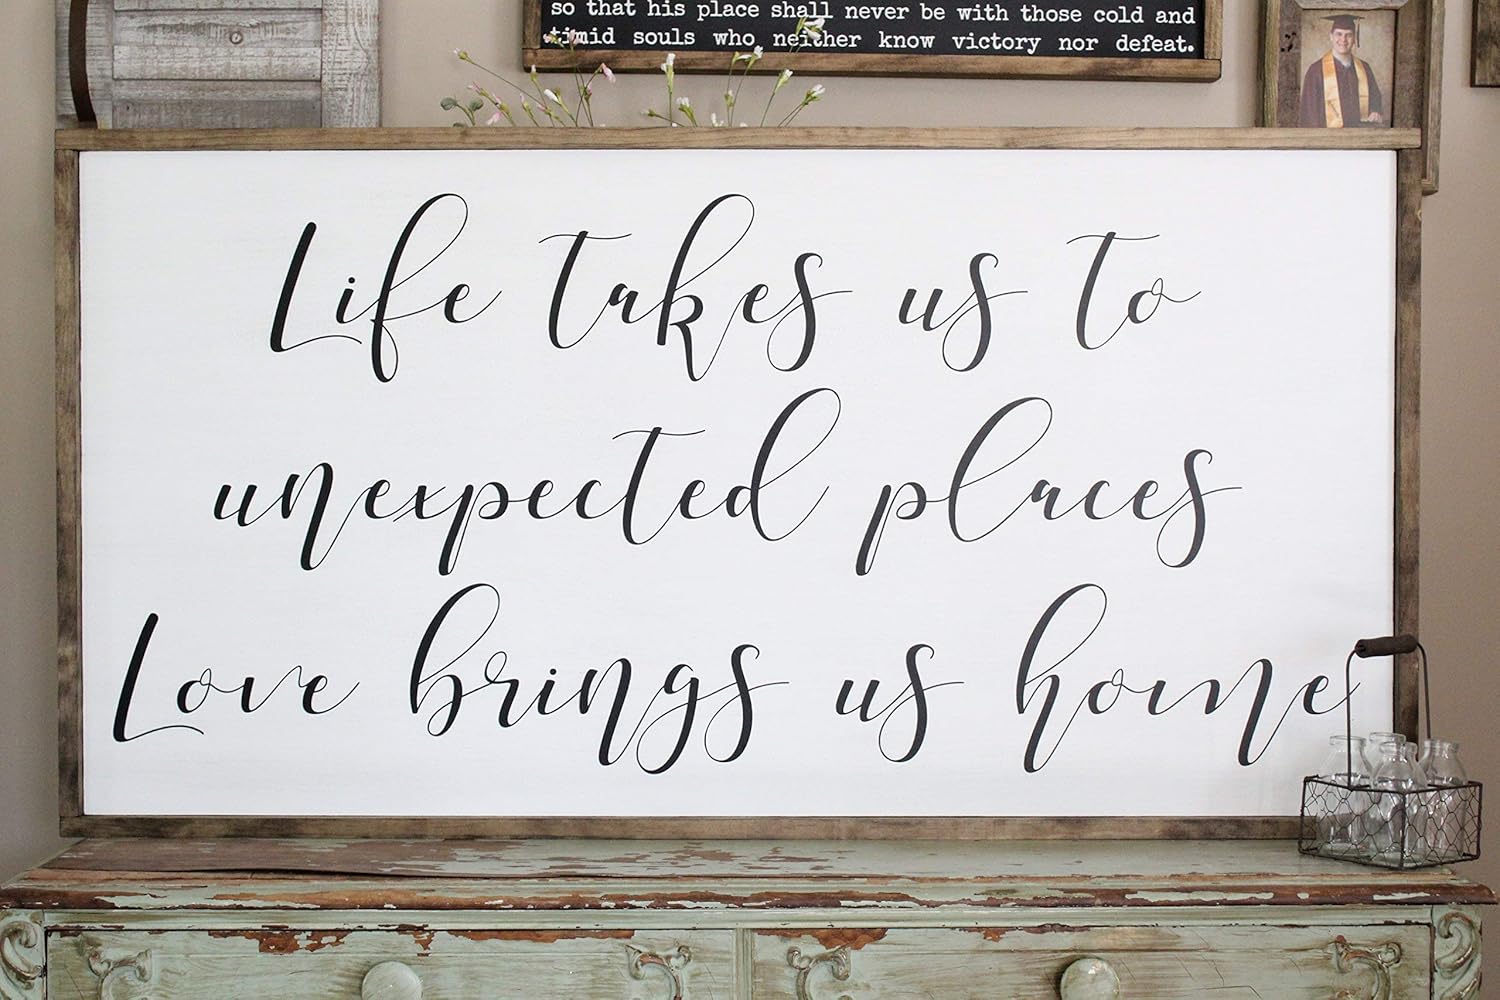 so that his place shall never be with those cold and
timid souls who neither know victory nor defeat.
Life takes us to
unexpected places
Love brings us home